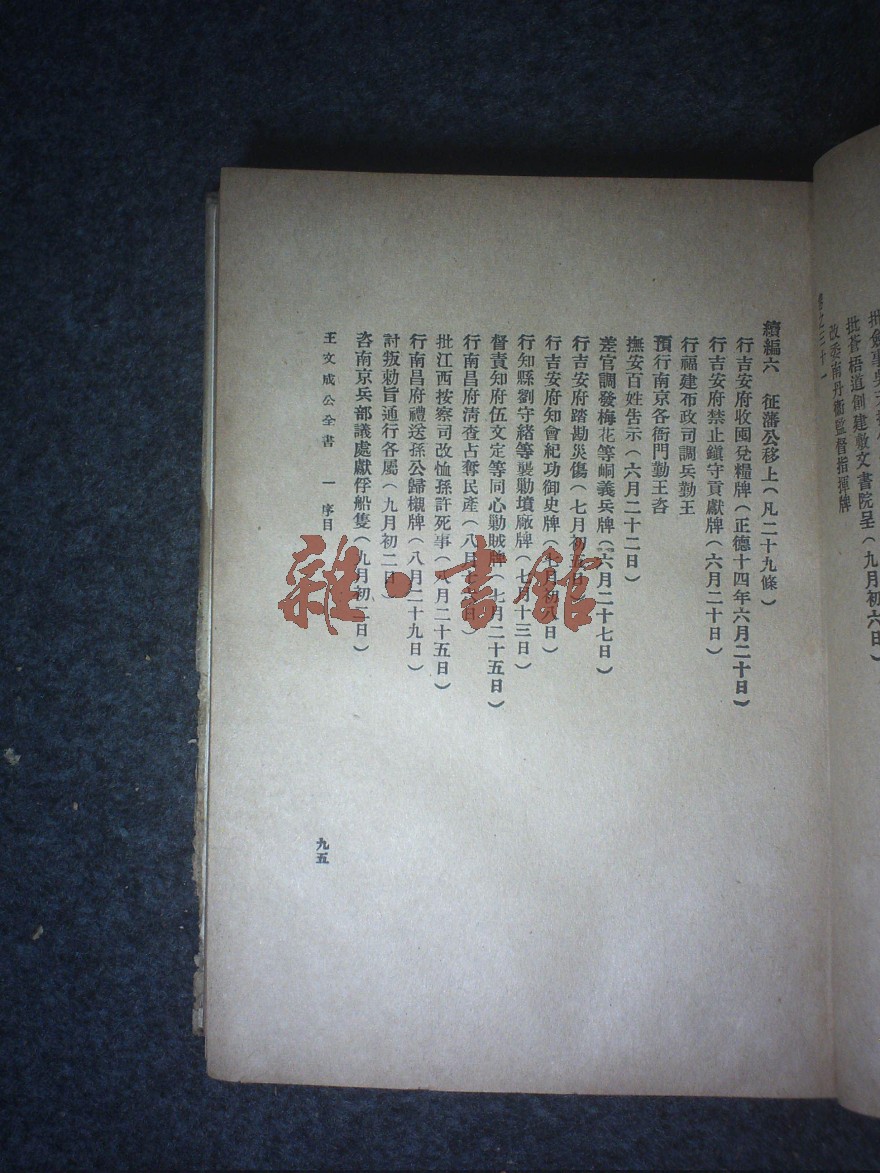 批蒼梧道創建敷文書院呈（九月初六日）
改委南丹衞監督指揮牌
續編六　征藩公移上（凡二十九條）
行吉安府收囤兌糧牌（正德十四年六月二十日）
行吉安府禁止鎮守貢獻牌（六月二十日）
行福建布政司調兵勤王
預行南京各衙門勤王咨
撫安百姓告示（六月二十二日）
差官調發梅花等峒義兵牌（六月二十七日）
行吉安府踏勘災傷（七月初五日）
行吉安府知會紀功御史牌（七月初八日）
行知縣劉守緒等襲勦墳廠牌（七月十三日）
督責知府伍文定等同心勦賊牌（七月二十五日）
行南昌府清查占奪民產（八月　日）
批江西按察司改恤孫許死事（八月二十五日）
行南昌府禮送孫公歸櫬牌（八月二十九日）
討叛勅旨通行各屬（九月初二日）
咨南京兵部議處獻俘船隻（九月初二日）
王文成公全書　一　序目
九五
雜·書館